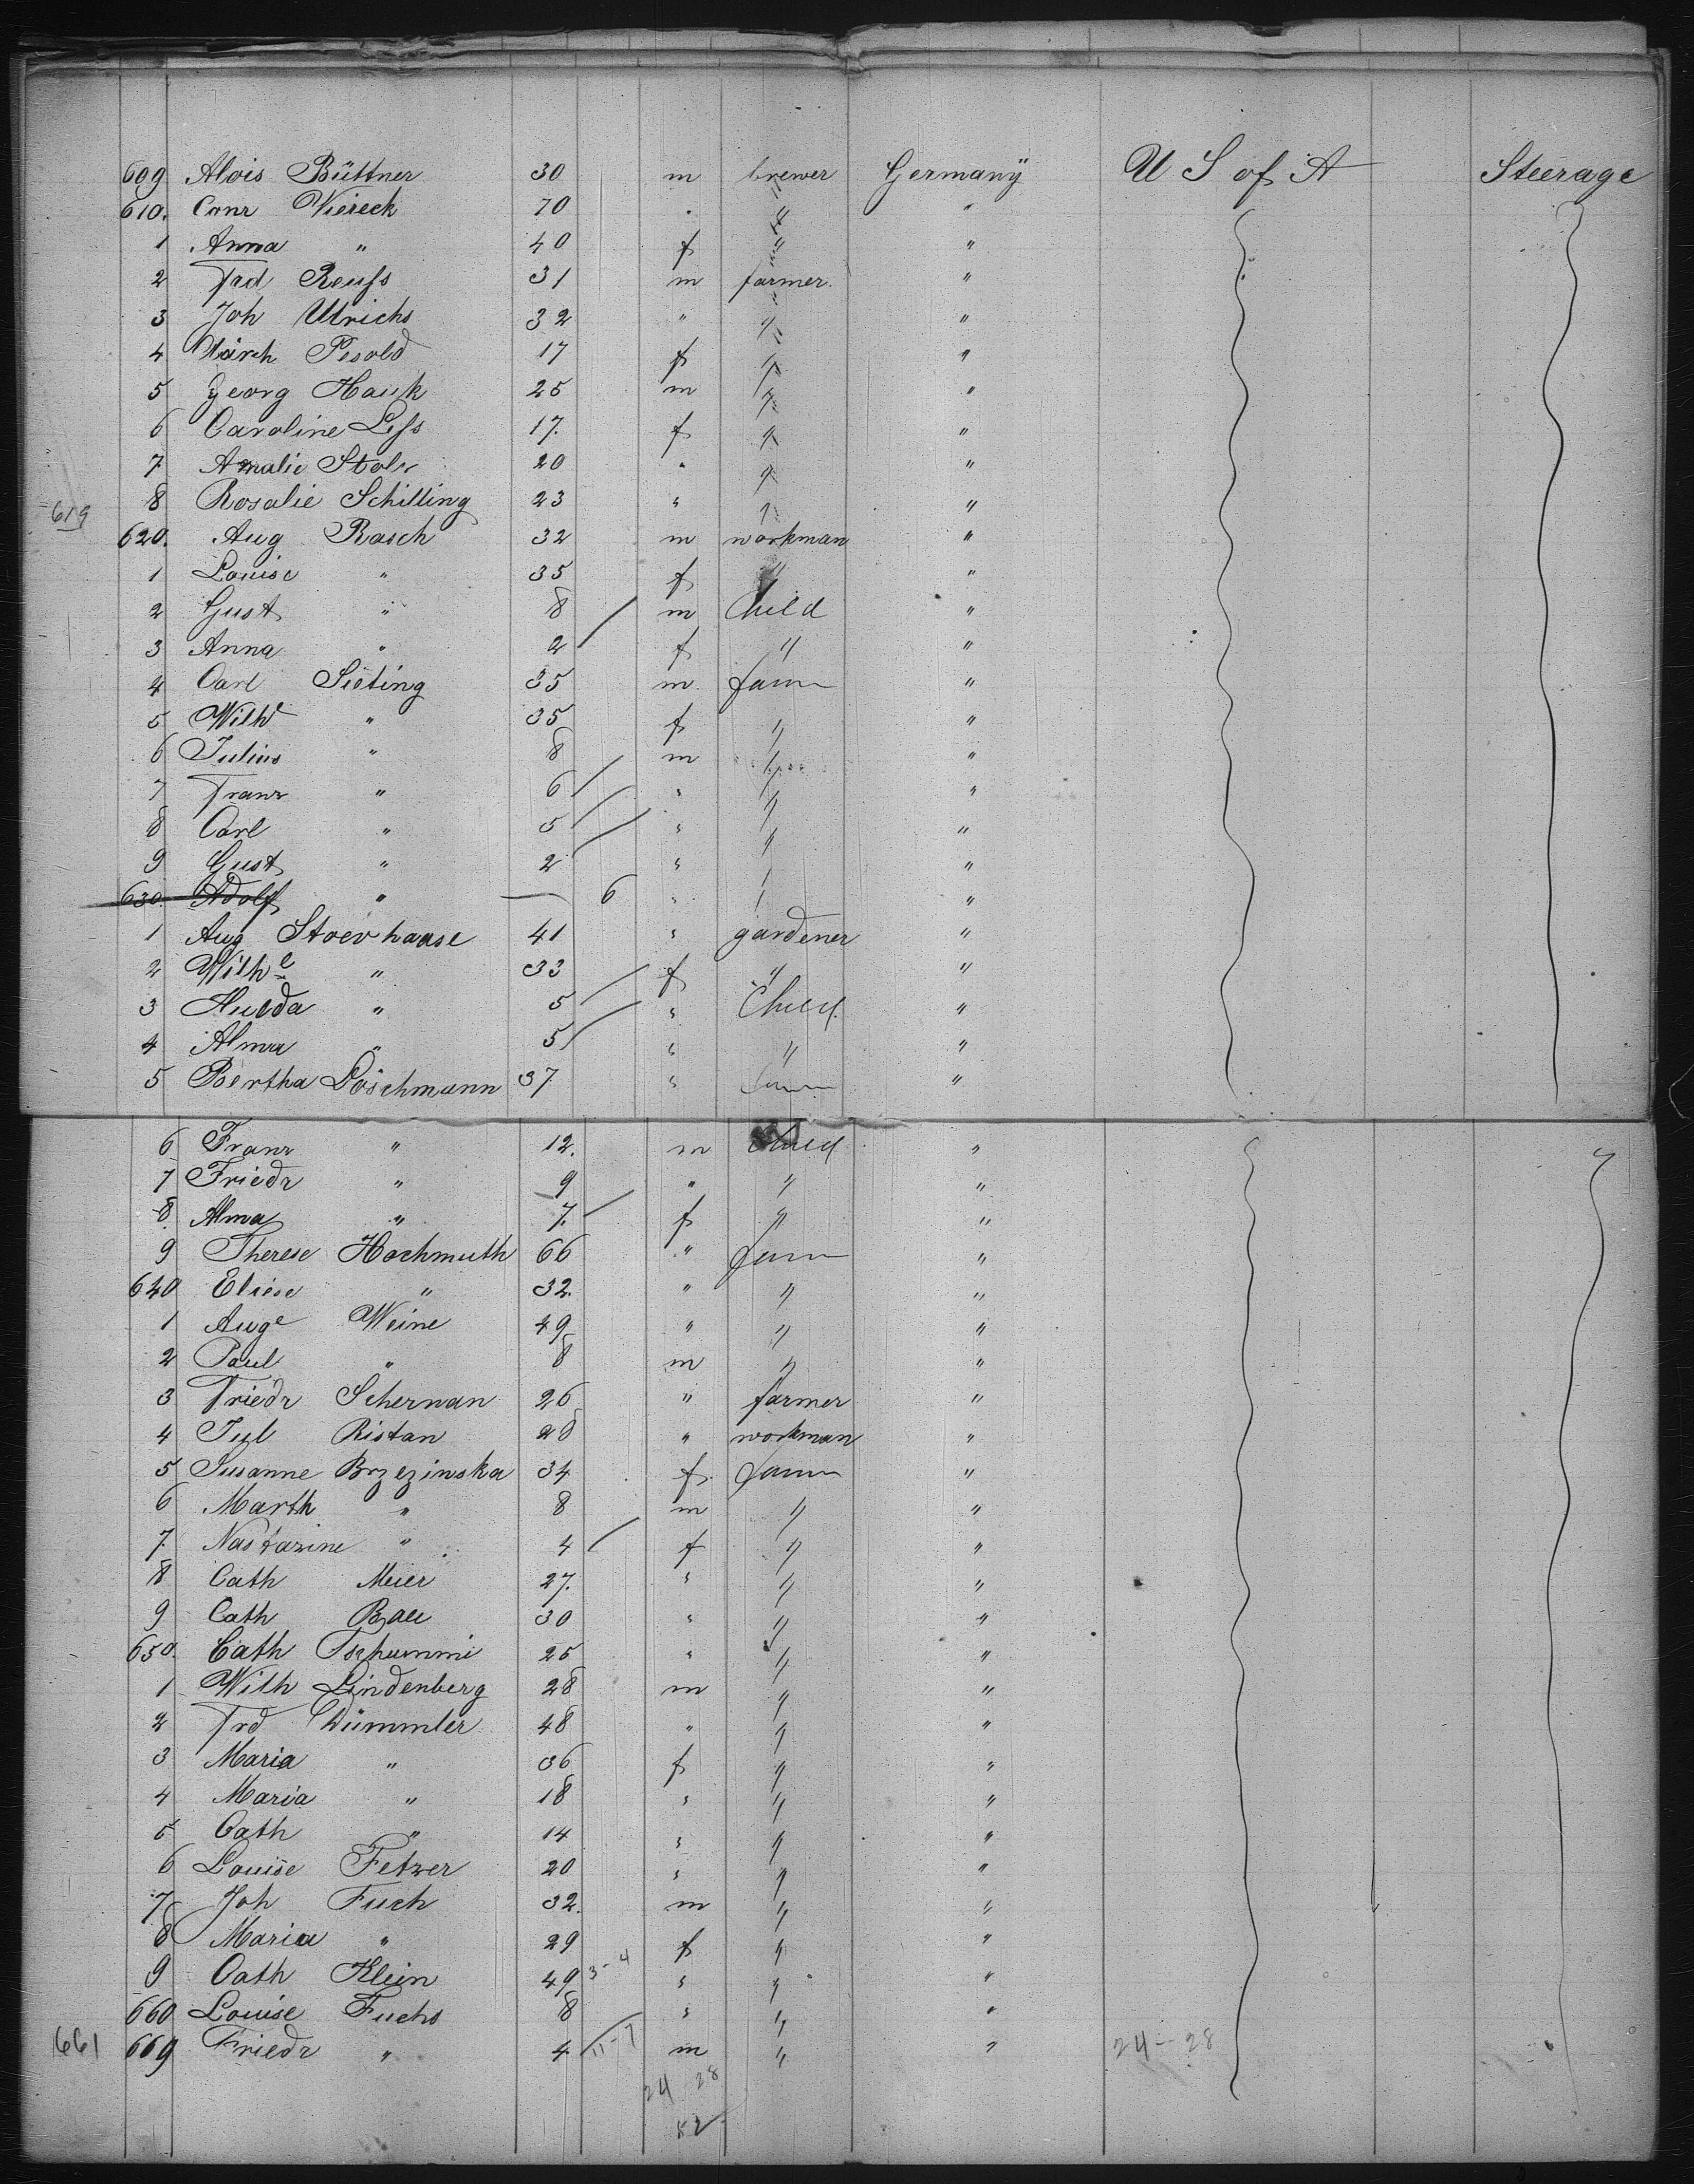 609 Alois Büttner 30 m brewer Germany U S of A Steerage
610. Conr Viereck 70 " " "
1 Anna " 40 f " "
2 Frd Reuſs 31 m farmer. "
3 Joh Ulrichs 32 " " "
4 Pesold 17 f " "
5 Georg Hauk 25 m " "
6 Caroline Leſs 17. f " "
7 Amalie 20 " " "
8 Rosalie Schilling 23 " " "
619
620. Aug Rasch 32 m workman "
1 Louise " 35 f " "
2 Gust " 8 m Child "
3 Anna " 2 f " "
4 Carl Sieting 35 m "
5 Wilhe " 35 f " "
6 Julius " 8 m " "
7 Franz " 6 " " "
8 Carl " 5 " " "
9 Gust " 2 " " "
630. Adolf " — 6 " " "
1 Aug Stoevhaase 41 " gardener "
2 Wilhe " 33 f " "
3 Hulda " 5 " Child. "
4 Alma " 5 " " "
5 Bertha Löschmann 37 " "
6 Franz " 12. m Child "
7 Friedr " 9 " " "
8 Alma " 7. f " "
9 Therese Hochmuth 66 " "
640 Eliese " 32. " " "
1 Auge Weine 49 " " "
2 Paul " 8 m " "
3 Friedr Scherwan 26 " farmer "
4 Jul Ristan 28 " workman "
5 Susanne Brzezinska 34 f. "
6 Marth " 8 m " "
7. Nastazine " 4 f " "
8 Cath Meier 27. " " "
9 Cath Bau 30 " " "
650. Cath Tschummi 25 " " "
1 Wilh Lindenberg 28 m " "
2 Frd Dümmler 48 " " "
3 Maria " 36 f " "
4 Maria " 18 " " "
5 Cath " 14 " " "
6 Louise Fetzer 20 " " "
7 Joh Fuch 32. m " "
8 Maria " 29 f " "
9 Cath Klein 49 3-4 " " "
660 Louise Fuchs 8 " " "
661 669 Friedr " 4 11-7 m " " 24-28
24 28
52